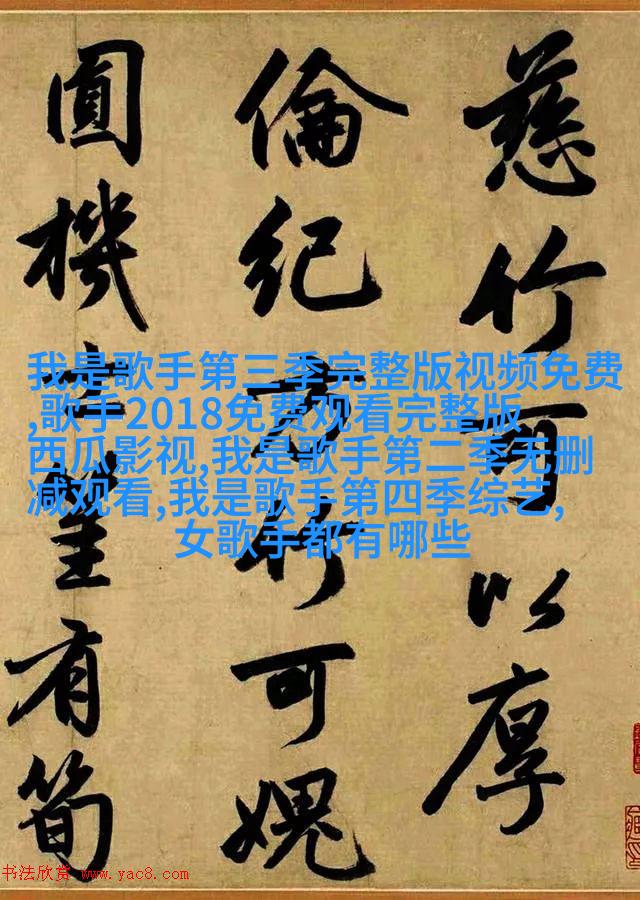 慈竹百以厚
倫紀方竹可媿
圓機有筍
我是歌手第三季完整版视频免费
,歌手2018免费观看完整版
西瓜影视,我是歌手第二季无删
减观看,我是歌手第四季综艺,
女歌手都有哪些
书法欣赏 www.yac8.com